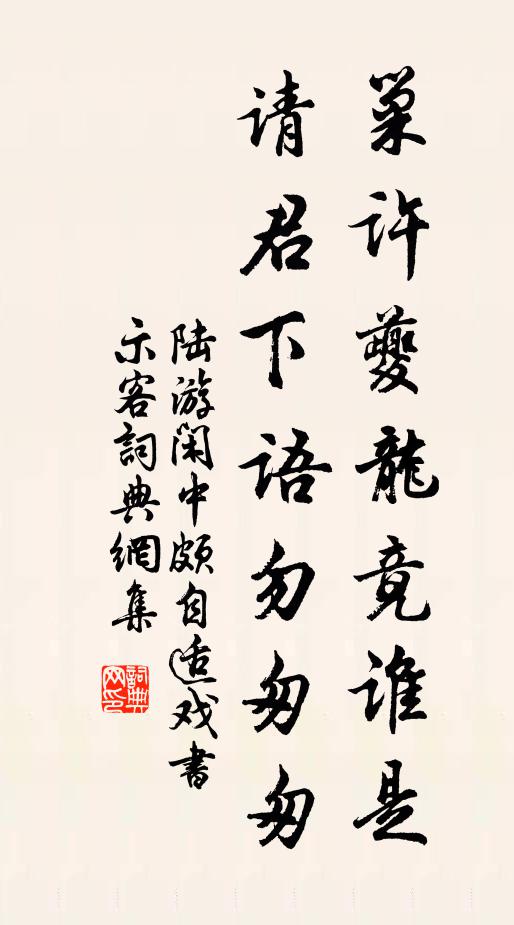 巢许夔龍竟谁是
请君下语勿匆匆
陆游闲中颇自适戏书
示客詞典網集
詞典网印